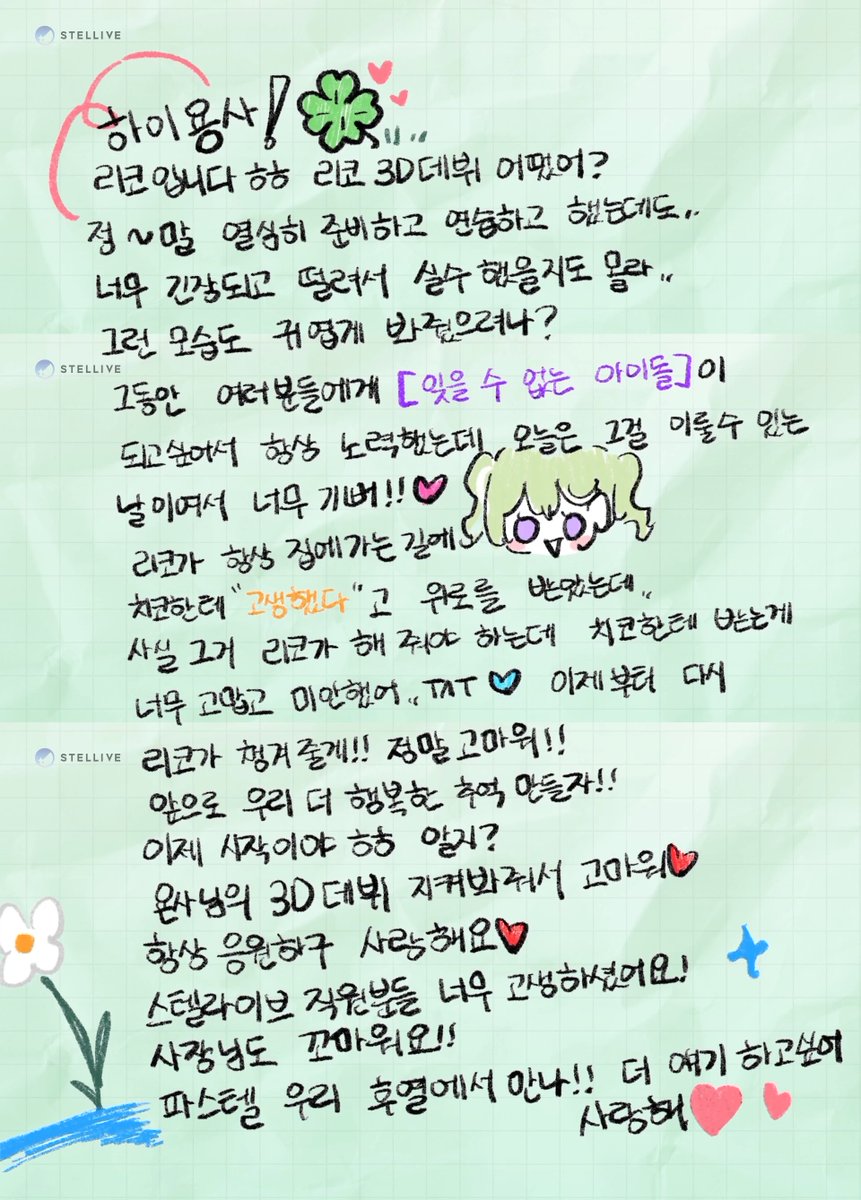 STELLIVE
하이용사!
리코입니다 ㅎㅎ 리코 3D데뷔 어땠어?
정~말 열심히 준비하고 연습하고 했는데도..
너무 긴장되고 떨려서 실수 했을지도 몰라..
그런 모습도 귀엽게 봐줬으려나?
STELLIVE
그동안 여러분들에게 [잊을 수 없는 아이돌]이
되고싶어서 항상 노력했는데 오늘은 그걸 이룰수 있는
날이여서 너무 기뻐!!
리코가 항상 집에가는 길에
치코한테 "고생했다"고 위로를 받았는데..
사실 그거 리코가 해 줘야 하는데 치코한테 받는게
너무 고맙고 미안했어.. TAT 이제부터 다시
STELLIVE
리코가 챙겨줄게!! 정말고마워!!
앞으로 우리 더 행복한 추억 만들자!!
이제 시작이야 ㅎㅎ 알지?
용사님의 3D데뷔 지켜봐줘서 고마워
항상 응원하구 사랑해요
스텔라이브 직원분들 너무 고생하셨어요!
사장님도 꼬마워요!!
파스텔 우리 후열에서 만나!! 더 얘기 하고싶어
사랑해